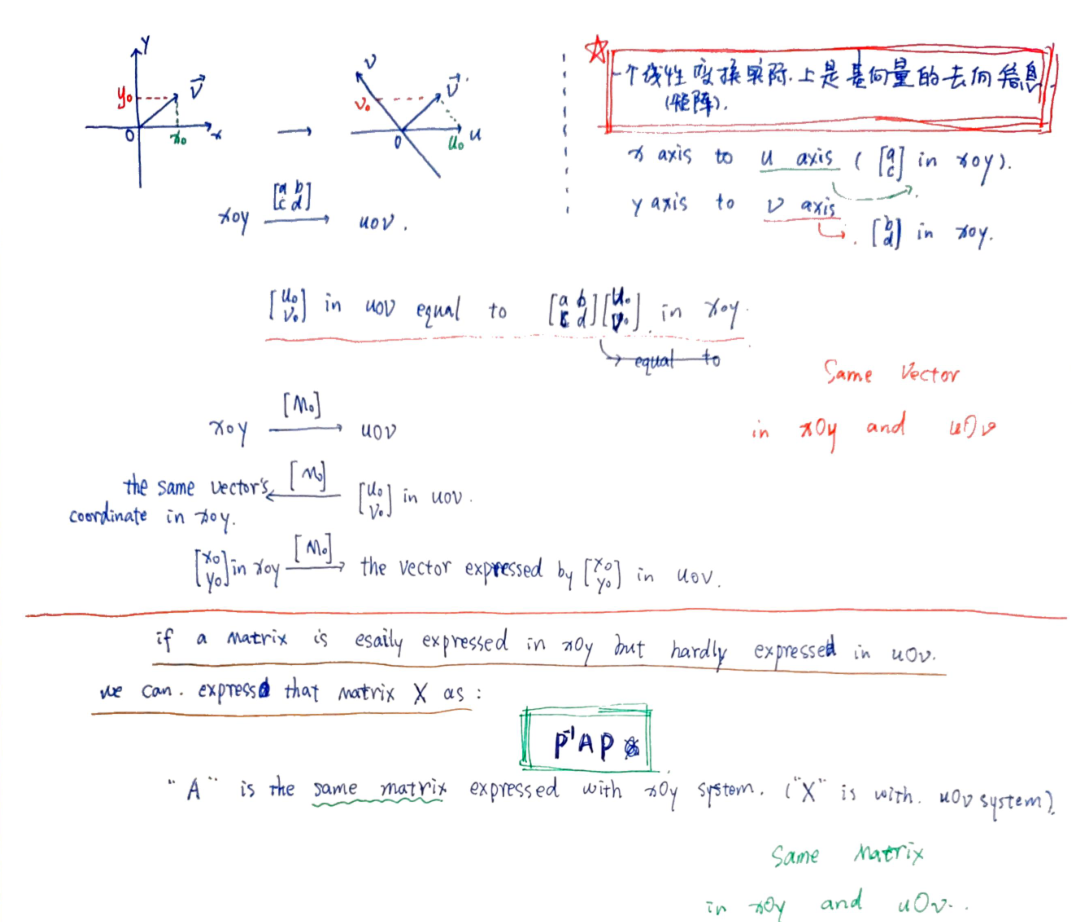 y
y₀
v⃗
O
x₀
x
→
v
v₀
v⃗
O
u₀
u
xoy [a b; c d] → uov.
☆ 一个线性变换实际上是基向量的去向信息
(矩阵).
x axis to u axis ( [a; c] in xoy).
y axis to v axis
[b; d] in xoy.
[u₀; v₀] in uov equal to [a b; c d][u₀; v₀] in xoy.
equal to
Same Vector
in xOy and uOv
xoy [M₀] → uov
the same vector's ← [M₀] [u₀; v₀] in uov.
coordinate in xoy.
[x₀; y₀] in xoy [M₀] → the vector expressed by [x₀; y₀] in uov.
if a matrix is esaily expressed in xOy but hardly expressed in uOv.
we can. express that matrix X as :
P⁻¹AP
"A" is the same matrix expressed with xOy system. ("X" is with. uOv system).
Same Matrix
in xOy and uOv..